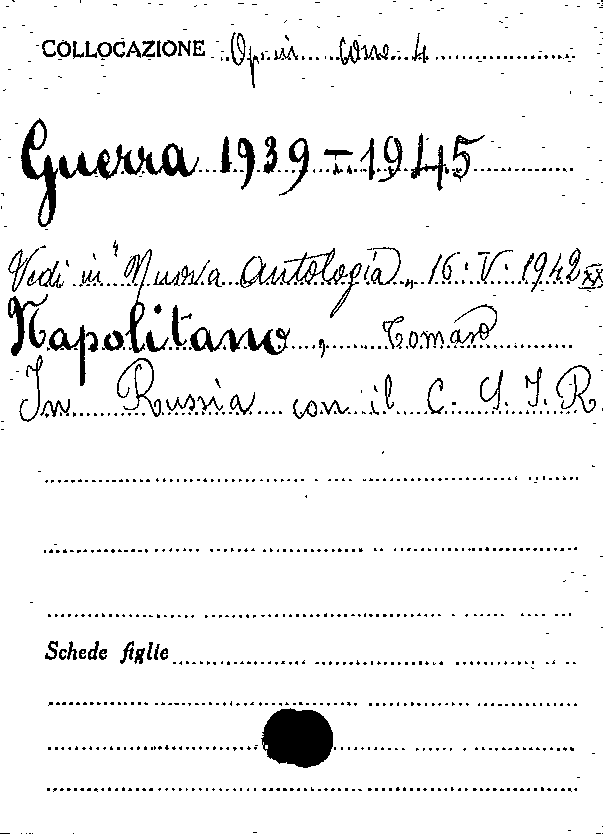 COLLOCAZIONE Op. in cons. 4
Guerra 1939-1945
Vedi in "Nuova Antologia„ 16. V. 1942 XX
Napolitano, Tomaso
In Russia con il C. S. I. R.
Schede figlie